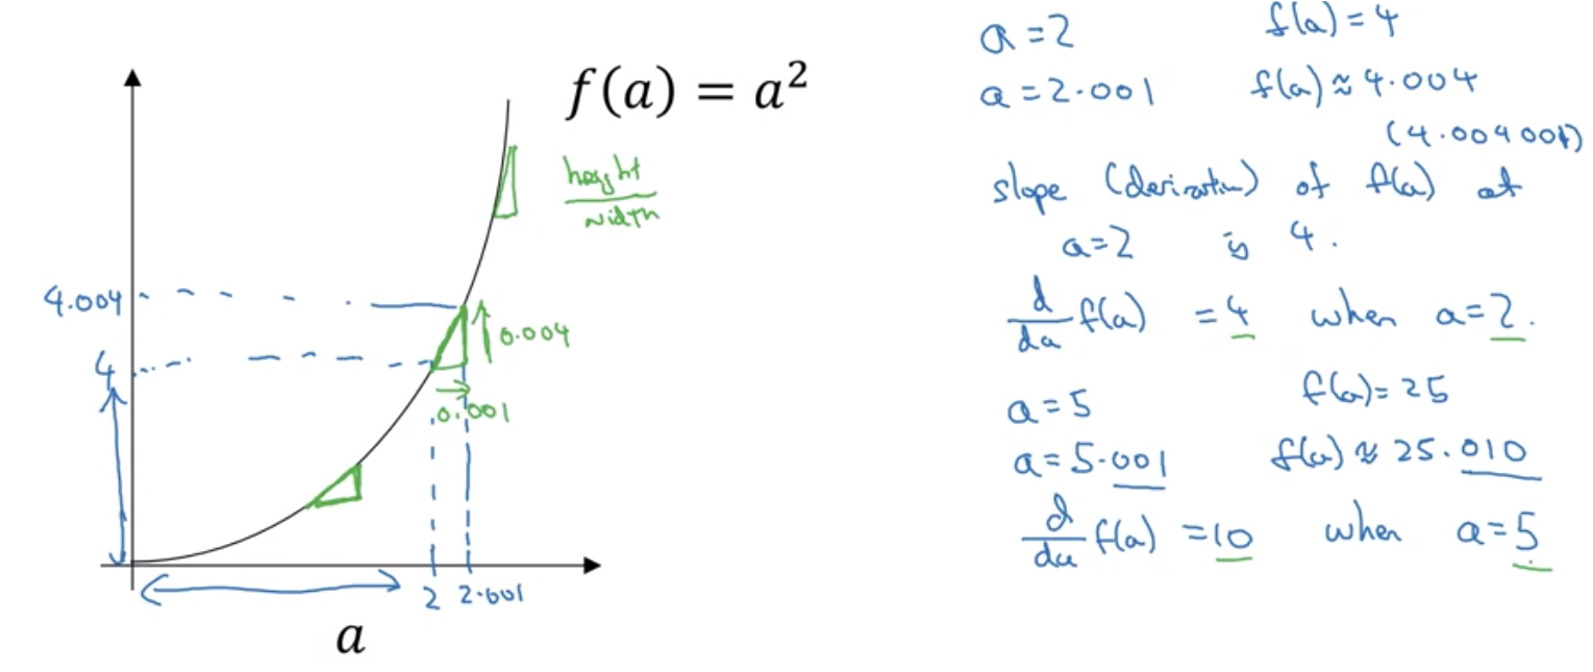 f(a) = a²
height
width
4.004
4
0.004
0.001
2 2.001
a
a=2 f(a)=4
a=2.001 f(a)≈4.004
(4.004001)
slope (derivative) of f(a) at
a=2 is 4.
d/da f(a) = 4 when a=2.
a=5 f(a)=25
a=5.001 f(a)≈25.010
d/da f(a) =10 when a=5